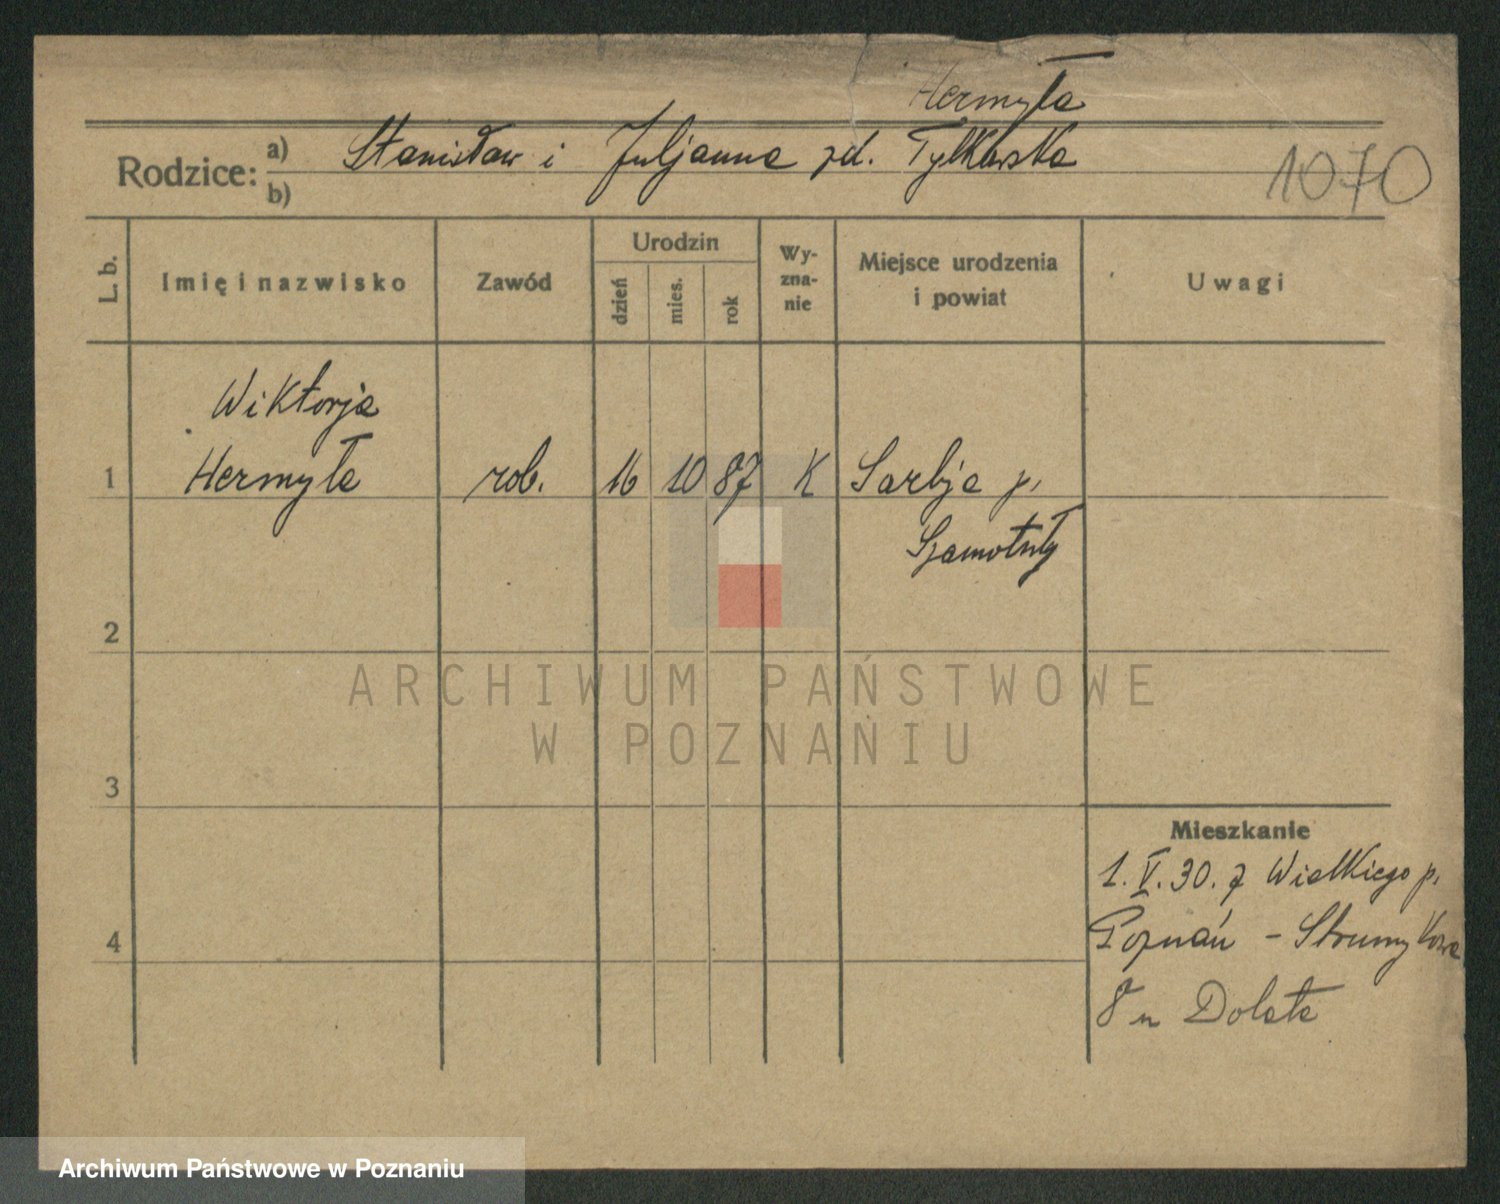 Hermyła
Rodzice: a) Stanisław i Juljanna zd. Tylkowska
b)
1070
L. b.
Imię i nazwisko
Zawód
Urodzin
dzień
mies.
rok
Wy-
zna-
nie
Miejsce urodzenia
i powiat
Uwagi
Wiktorja
1 Hermyła rob. 16 10 87 K Sarbja p.
Szamotuły
2
ARCHIWUM PAŃSTWOWE
W POZNANIU
3
Mieszkanie
1. V. 30. z Wielkiego p.
Poznań - Strumykowa
4
8 u Dolata
Archiwum Państwowe w Poznaniu